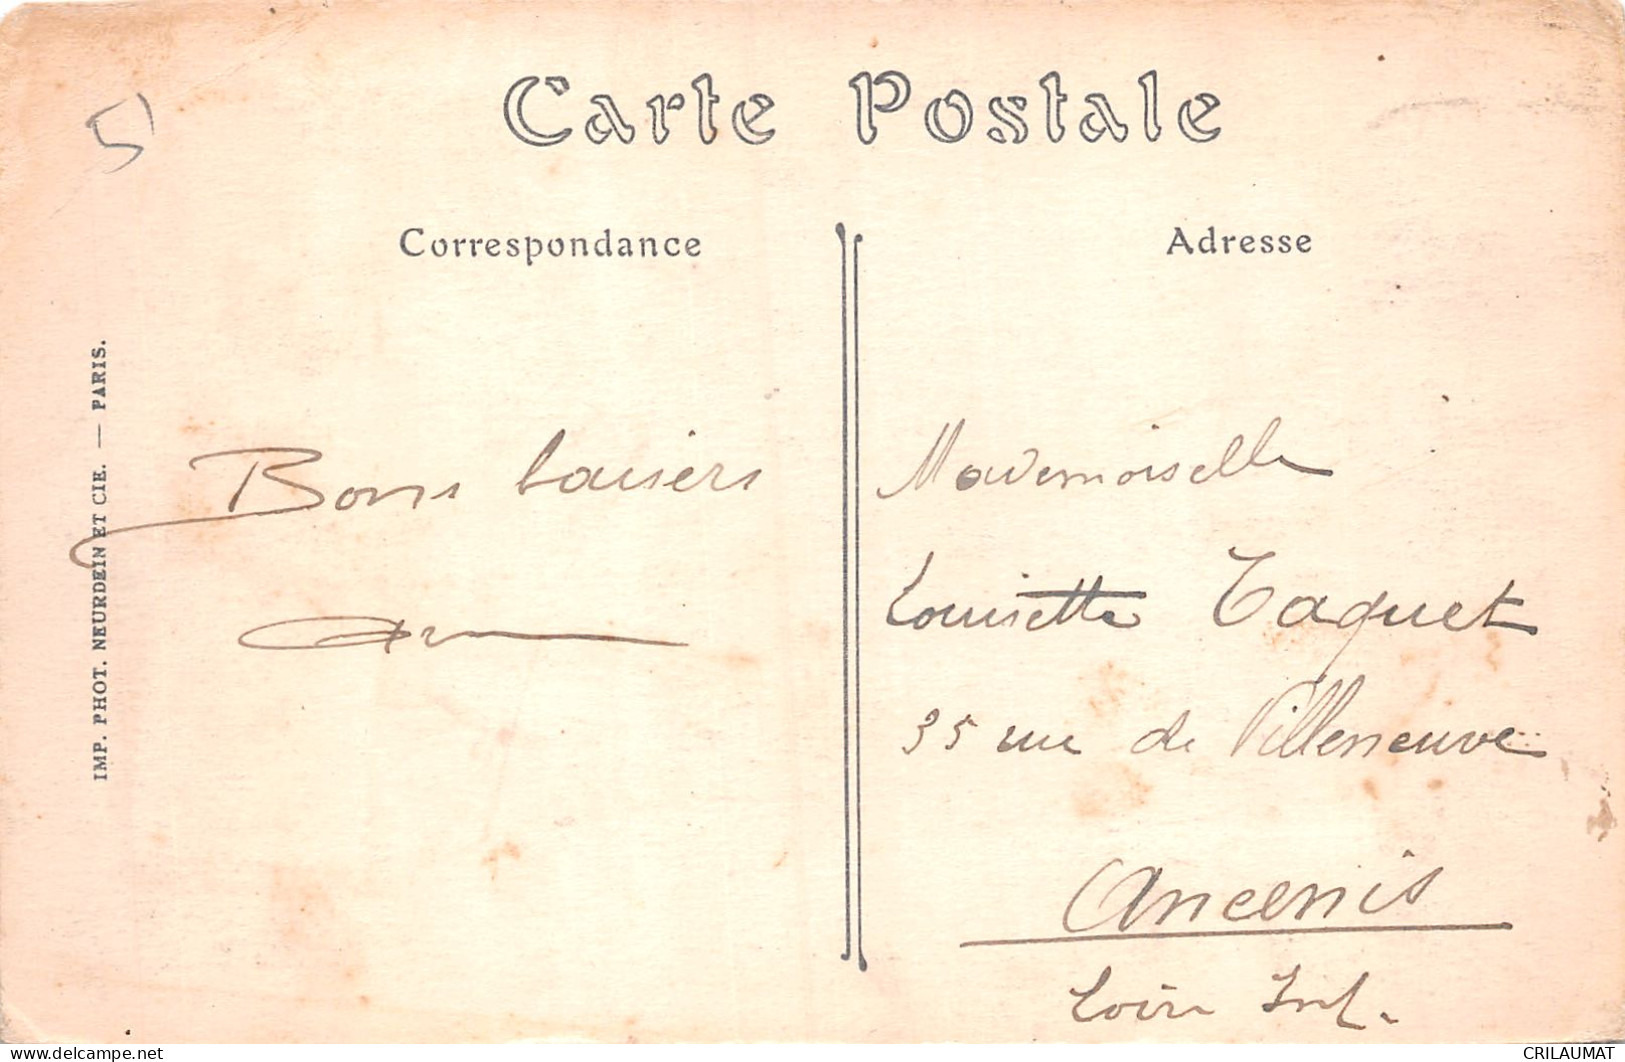 5
Carte Postale
Correspondance
Adresse
IMP. PHOT. NEURDEIN ET CIE. — PARIS.
Bons baisers
Mademoiselle
Louisette Taquet
35 rue de Villeneuve
Ancenis
Loire Inf.
delcampe.net
CRILAUMAT